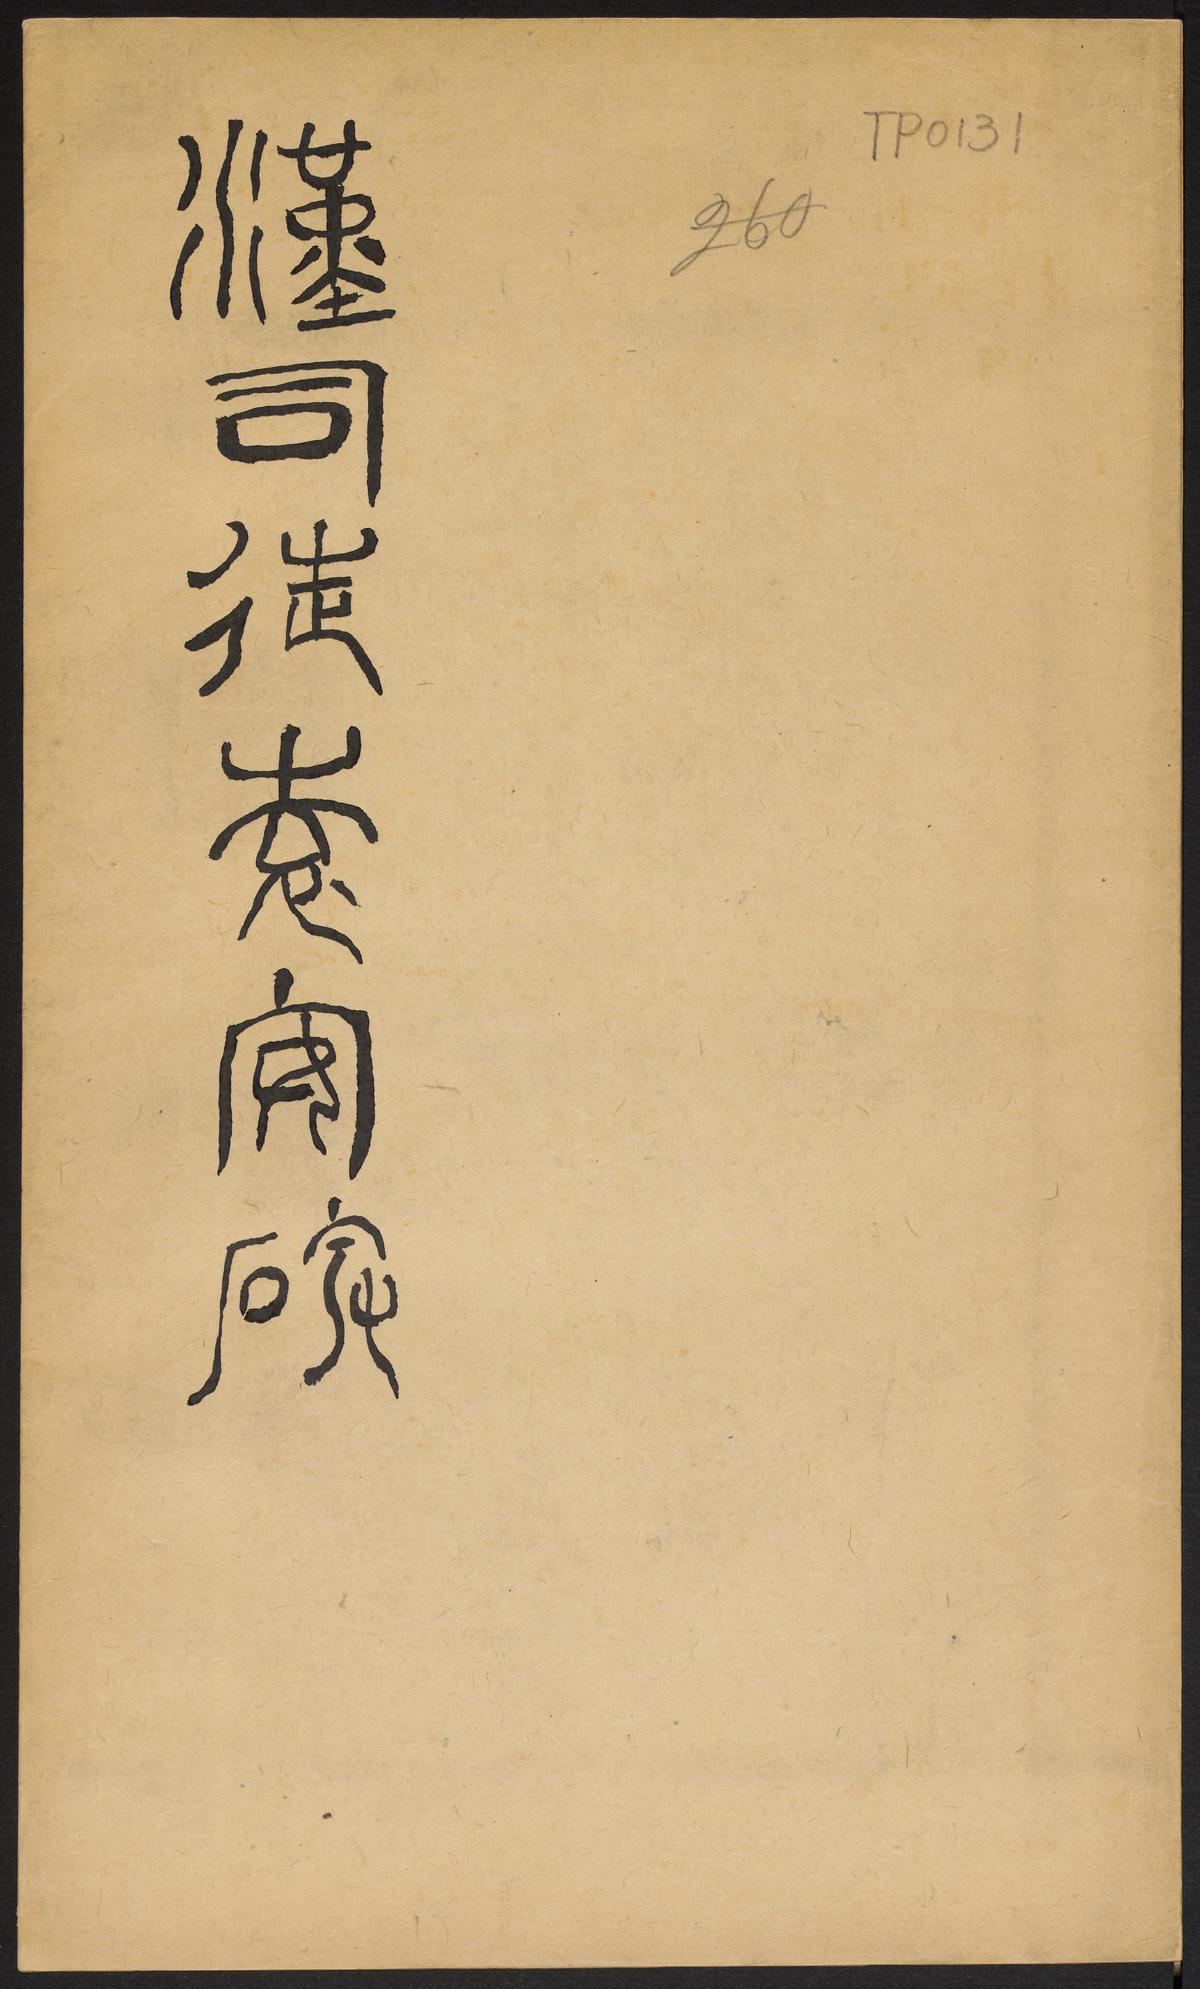 TP0131
260
漢司徒袁安碑